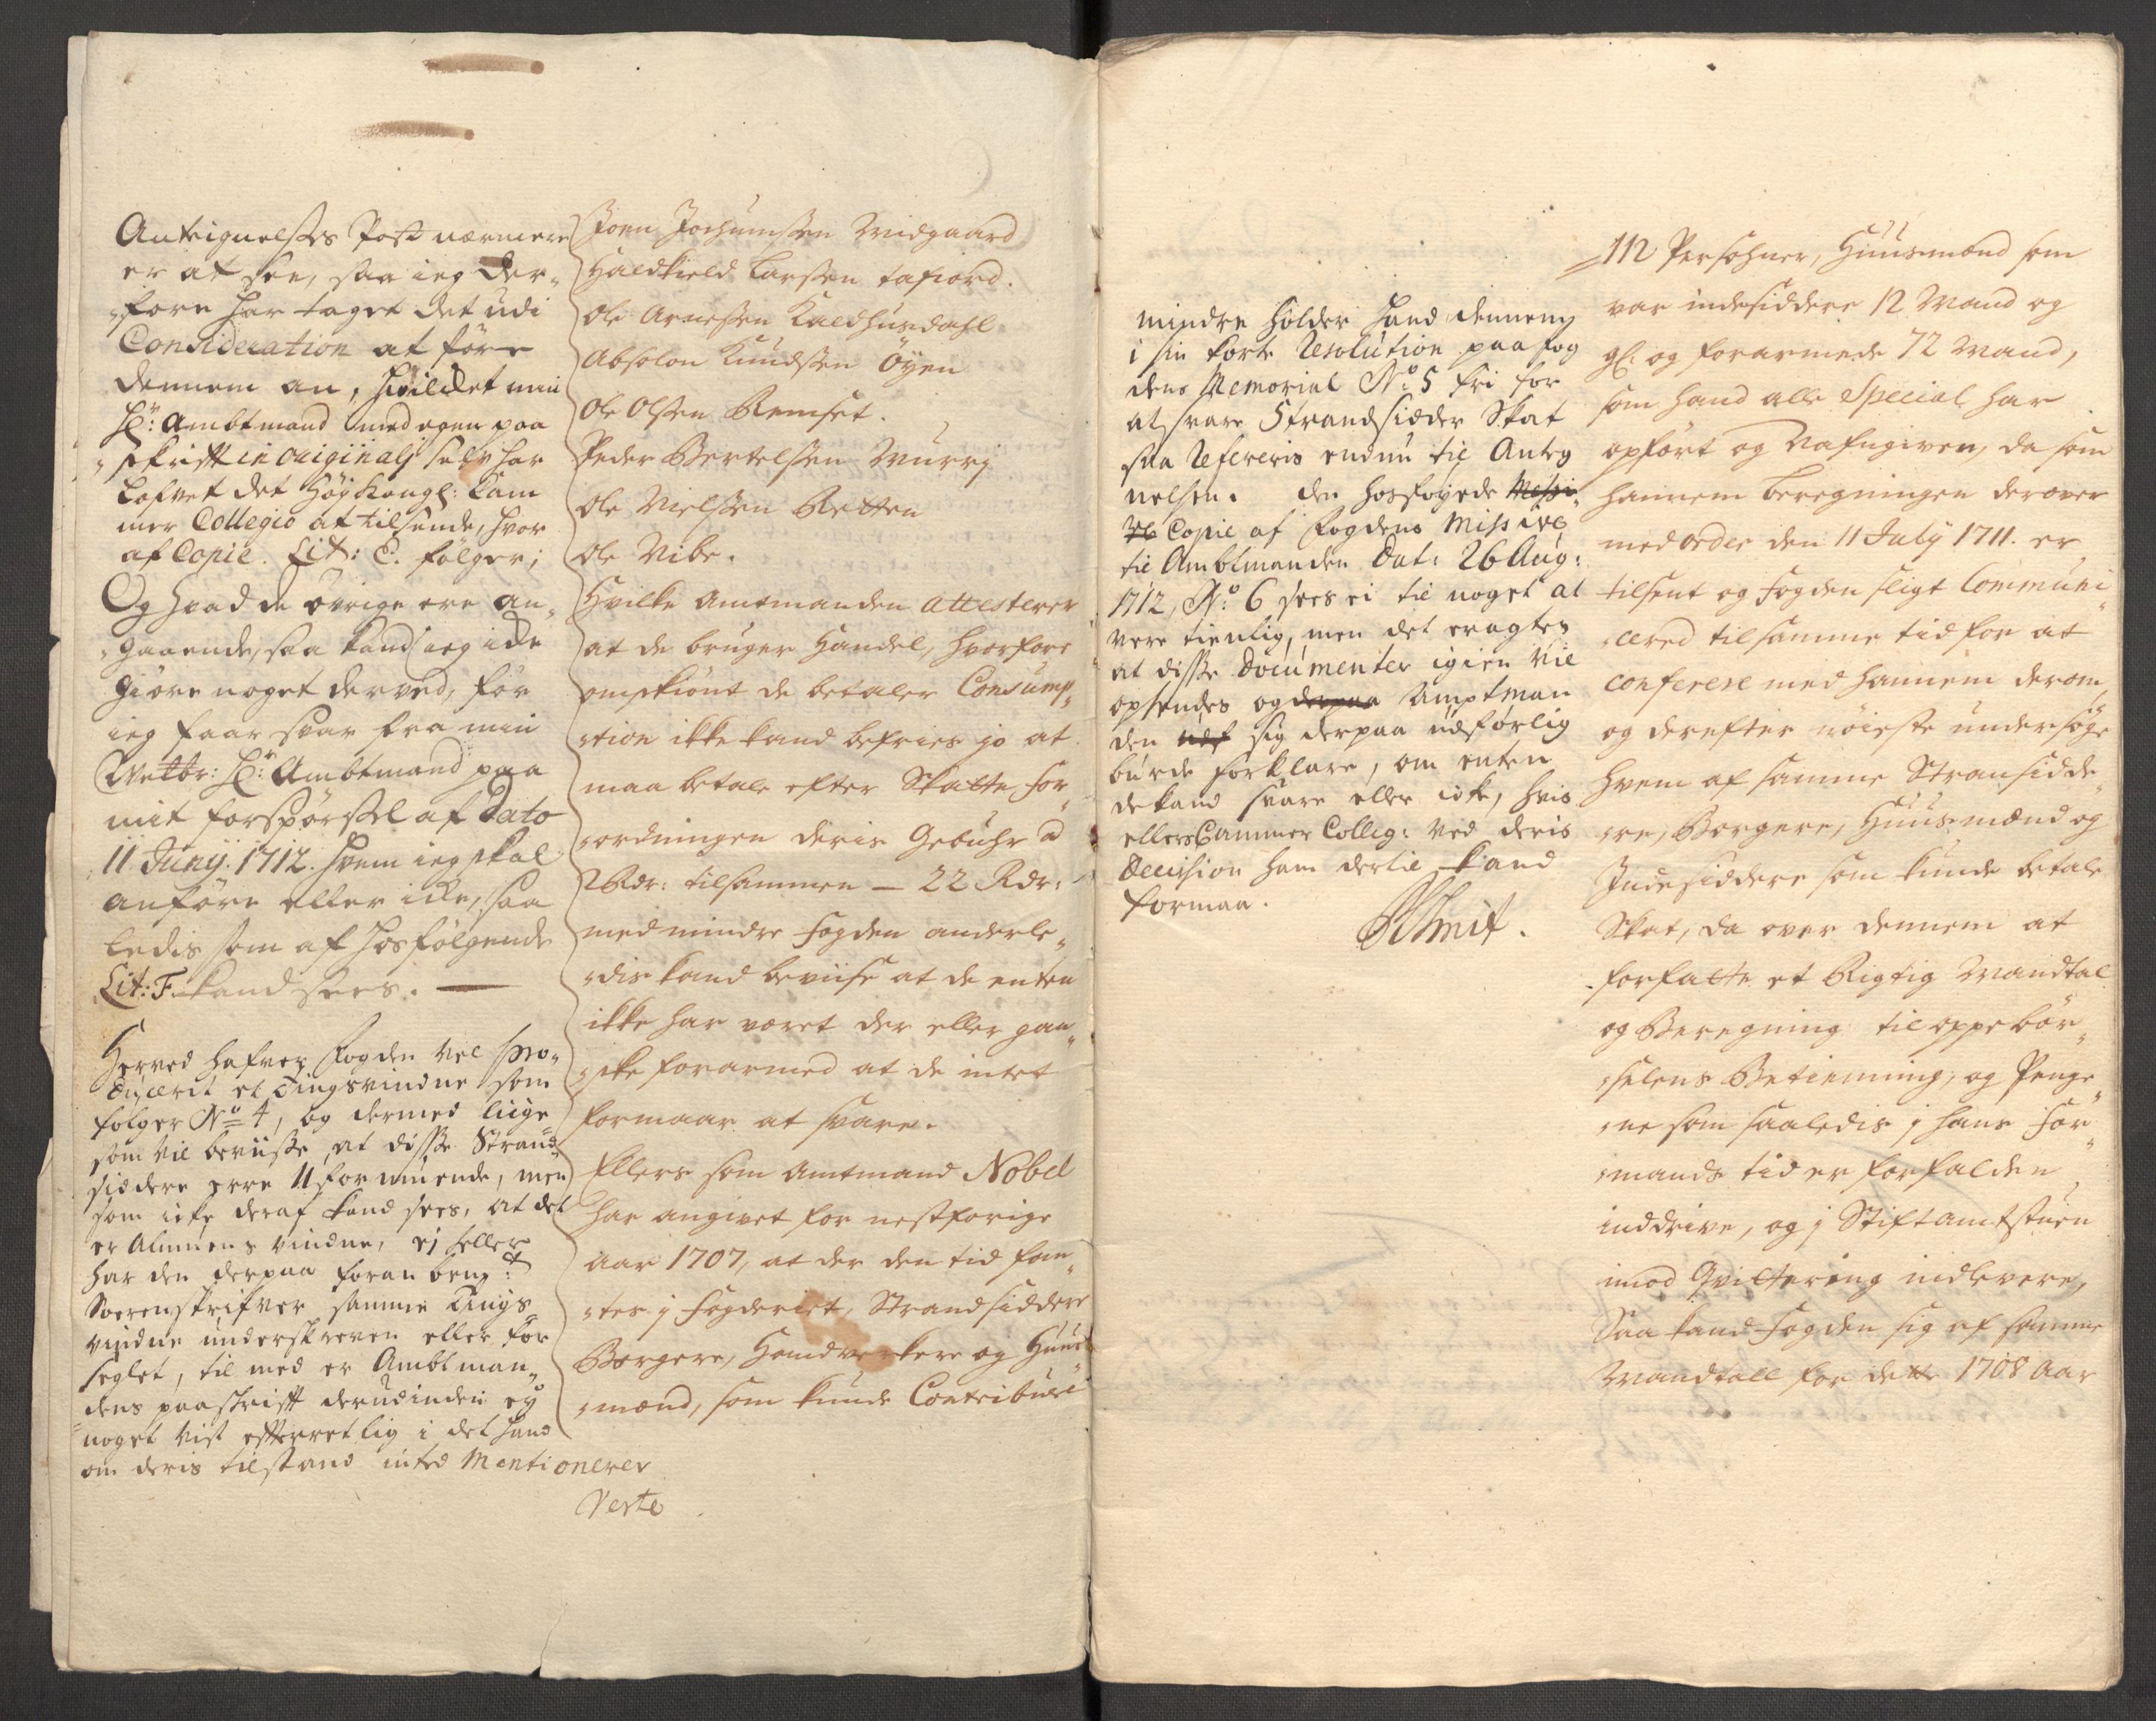 Anteignelses Post nærmere
er at see, saa ieg der„
„fore har taget det udi
Consideration at føre
dennem an, hvilcket min
Hr: Ambtmand med egen paa
„skrift in originali selv har
Lofvet det Høy Kongl: Cam
mer Collegio at tilsende, hvor
af Copie Lit: E. følger;
Og hvad de øvrige ere an„
„gaaende, saa kand ieg icke
giøre noget derved, før
ieg faar svar fra min
Welbr: Hr: Ambtmand paa
mit forspørssel af Dato
11 Junij. 1712. hvem ieg skal
anføre eller icke, saa
ledis som af hosfølgende
Lit: F. kand sees. —
Herved hafver Fogden vel pro„
ducerit et Tingsvindne som
følger No 4, og dermed liige
som vil beviisse, at disse Strand
siddere erre Uformuende, men
som icke deraf kand sees, at det
er Almuens vindne, ej heller
har den derpaa foran benf:t
Sorenskrifver samme Tings
vindne underskreven eller for
seglet, til med er Ambtman„
dens paaskrift derudinden ey
noget vist efterretlig i det hand
om deris tilstand inted Mentionerer
Joen Jochumssen Midgaard
Haldkield Larssen Tafiord.
Ole Arnessen Kaldhusdahl
Absolon Knudssen Øyen
Ole Olssen Remset.
Peder Bertelssen Murrj
Ole Nielssen Retten
Ole Vibe.
Hvilke Amtmanden attesterer
at de bruger Handel, hvorfore
omskiønt de betaler Consump„
„tion ikke kand befries jo at
maa betale efter Skatte For„
„ordningen deris Gebuhr a
2 Rdr: tilsammen — 22 Rdr:
med mindre Fogden anderle„
„dis kand beviise at de enten
ikke har været der eller gan„
„ske forarmed at de intet
formaar at svare.
Ellers som Amtmand Nobel
har angivet for nestforige
Aar 1707, at der den tid fan„
„tes j Fogderiet, Strandsiddere
Borgere, Handverkere og Huus
„mænd, som kunde Contribuere
Verte
mindre holder hand dennem
i sin korte Resolution paa Fog
dens Memorial No 5 fri for
at svare Strandsidder Skat
saa Refereris endnu til Anteg
nelsen. den hosføyede
Copie af Fogdens Missive
til Ambtmanden Dat: 26 Aug:
1712, No 6 sees ei til noget at
vere tienlig, men det eragtes
at disse Documenter igien vil
opsendes og derpaa Amptman
den sig derpaa udførlig
burde forklare, om enten
de kand svare eller icke, hvis
ellers Cammer Colleg: ved deris
Decision ham dertil kand
formaa.
Smit.
112 Persohner, Huusmænd som
var indesiddere 12 Mand og
gl: og forarmede 72 Mand,
som hand alle Special har
opført og Nafngiven, da som
hannem beregningen derover
med order den 11 July 1711. er
tilsent og Fogden sligt Communi„
„cered til samme tid for at
conferere med hannem derom,
og derefter nøieste undersøge
hvem af samme Stransidde„
„re, Borgere, Huusmænd og
Indesiddere som kunde betale
Skat, da over dennem at
forfatte et Rigtig Mandtal
og Beregning til oppebør„
„selens Betiening, og Penge„
„ne som saaledis j hans For„
„mands tid er forfalden
inddrive, og j Stiftamtstuen
imod Qvittering indlevere,
Saa kand Fogden sig af samme
Mandtall for dette 1708 Aar